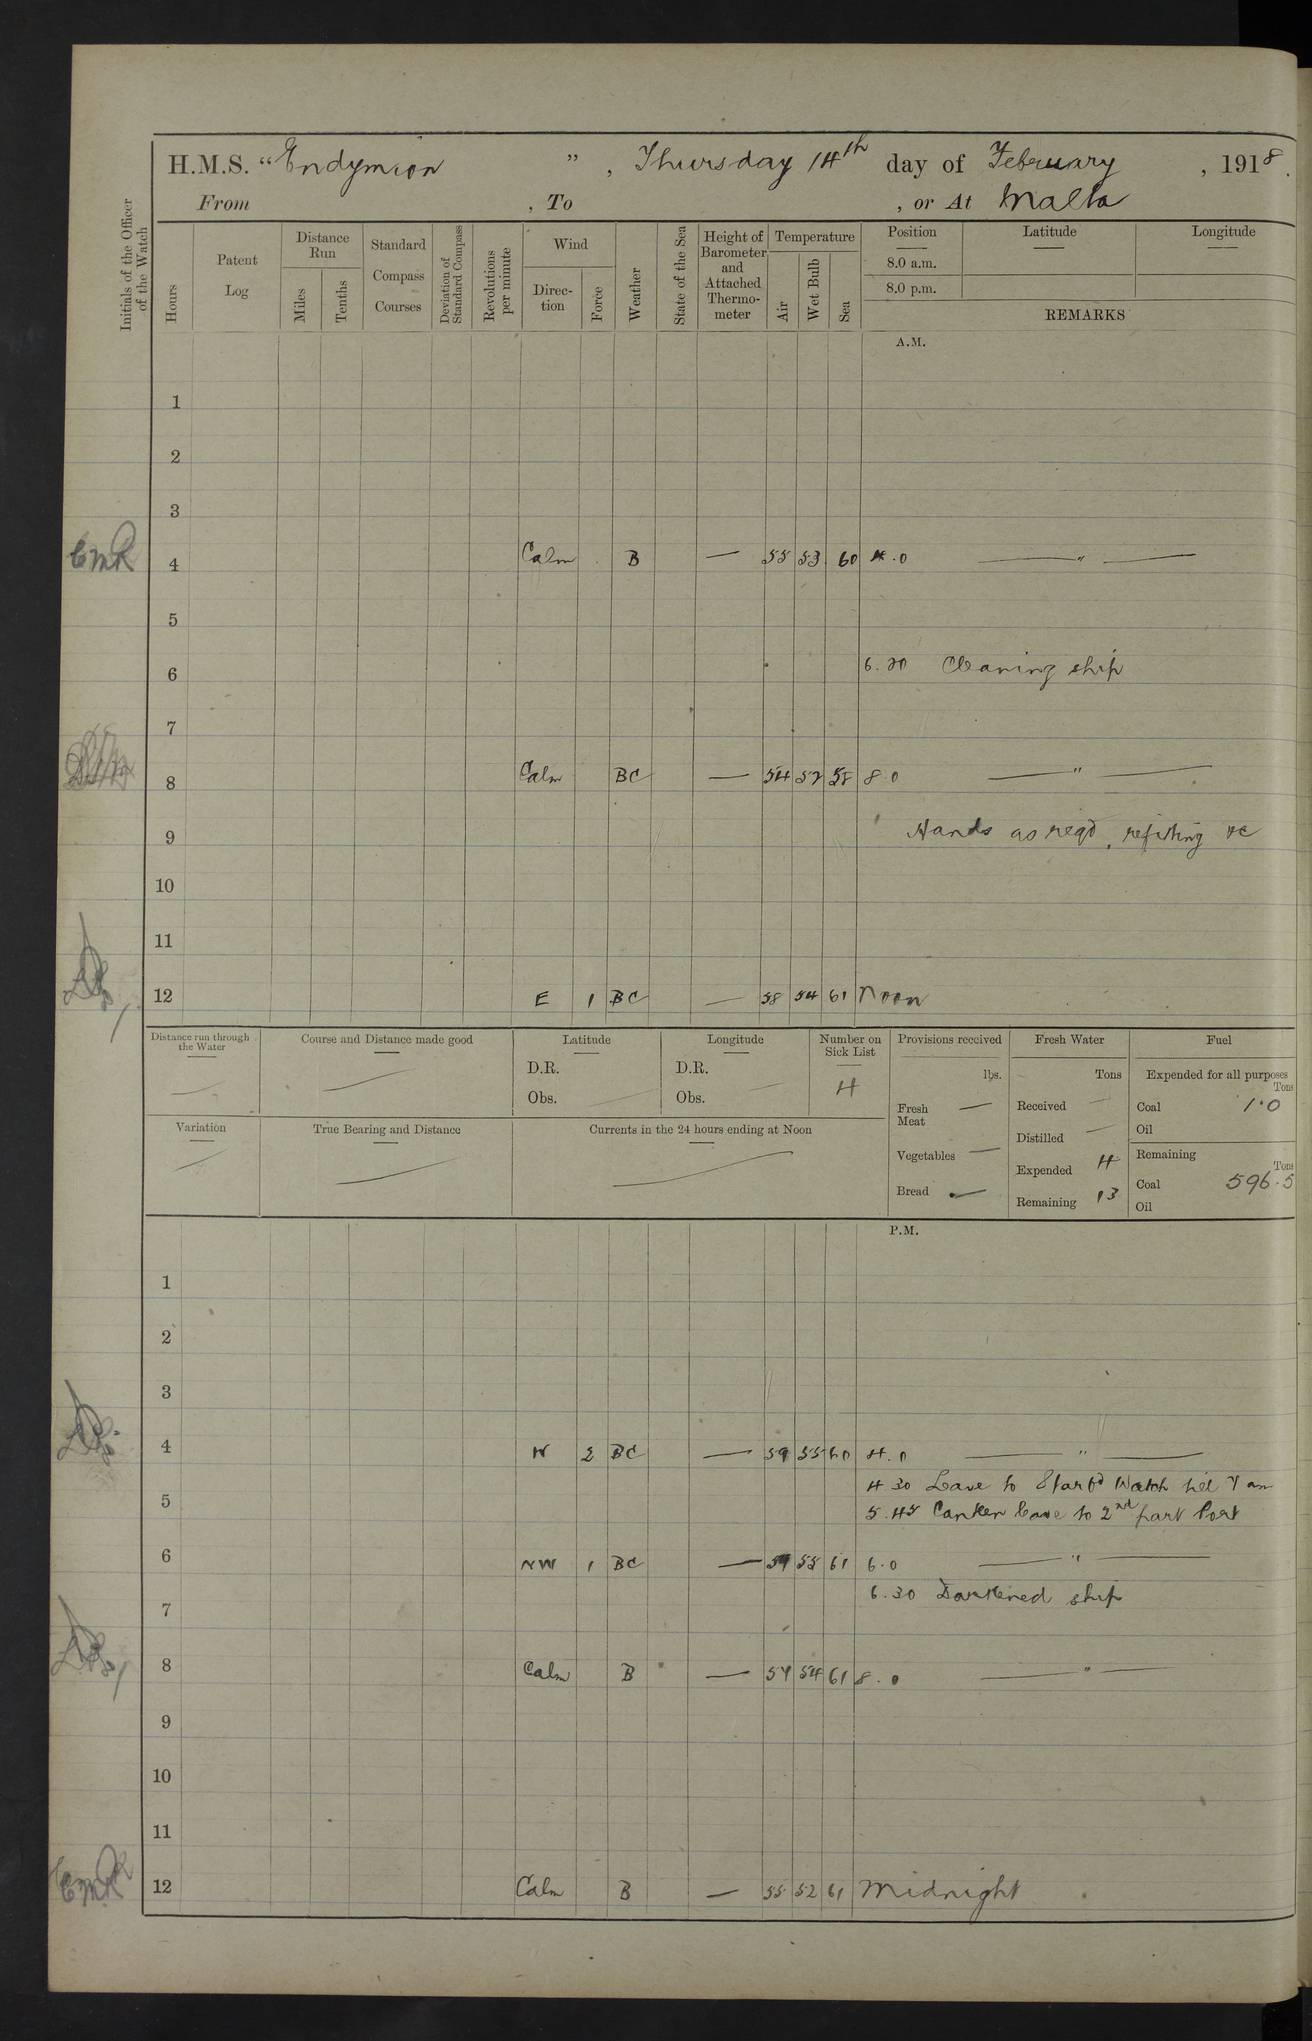 H.M.S. “Endymion ”, Thursday 14th day of February, 1918.
From , To , or At Malta
Initials of the Officer of the Watch
Hours
Patent Log
Distance Run
Miles
Tenths
Standard Compass Courses
Deviation of Standard Compass
Revolutions per minute
Wind
Direc-tion
Force
Weather
State of the Sea
Height of Barometer and Attached Thermo-meter
Temperature
Air
Wet Bulb
Sea
Position
8.0 a.m.
8.0 p.m.
Latitude
Longitude
REMARKS
A.M.
1
2
3
EMR 4 Calm B — 55 53 60 4.0 — " —
5
6 6.20 Cleaning ship
7
8 Calm BC — 54 52 58 8.0 — " —
9 Hands as reqd, refitting &c
10
11
12 E 1 BC — 58 54 61 Noon
Distance run through the Water
Course and Distance made good
Latitude
D.R.
Obs.
Longitude
D.R.
Obs.
Number on Sick List
4
Provisions received
lbs.
Fresh Meat —
Vegetables —
Bread —
Fresh Water
Tons
Received —
Distilled —
Expended 4
Remaining 13
Fuel
Expended for all purposes
Tons
Coal 1.0
Oil
Remaining
Tons
Coal 596.5
Oil
Variation
True Bearing and Distance
Currents in the 24 hours ending at Noon
P.M.
1
2
3
4 2 BC — 59 55 60 4.0 — " —
4 30 Leave to Starbd Watch til 7 am
5 5.45 Canteen leave to 2nd part Port
6 NW 1 BC — 55 61 6.0 — " —
6.30 Darkened ship
7
8 Calm B — 57 54 61 8.0 — " —
9
10
11
EMR 12 Calm B — 55 52 61 Midnight